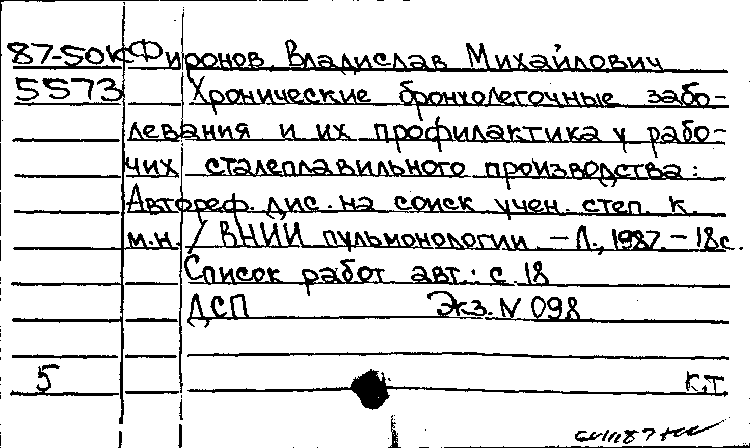 87-50К Фиронов, Владислав Михайлович
5573 Хронические бронхолегочные забо-
левания и их профилактика у рабо-
чих сталеплавильного производства:
Автореф. дис. на соиск учен. степ. к.
м.н. / ВНИИ пульмонологии. – Л., 1987. – 18с.
Список работ авт.: с. 18
ДСП Экз. N 098
5 К.Т.